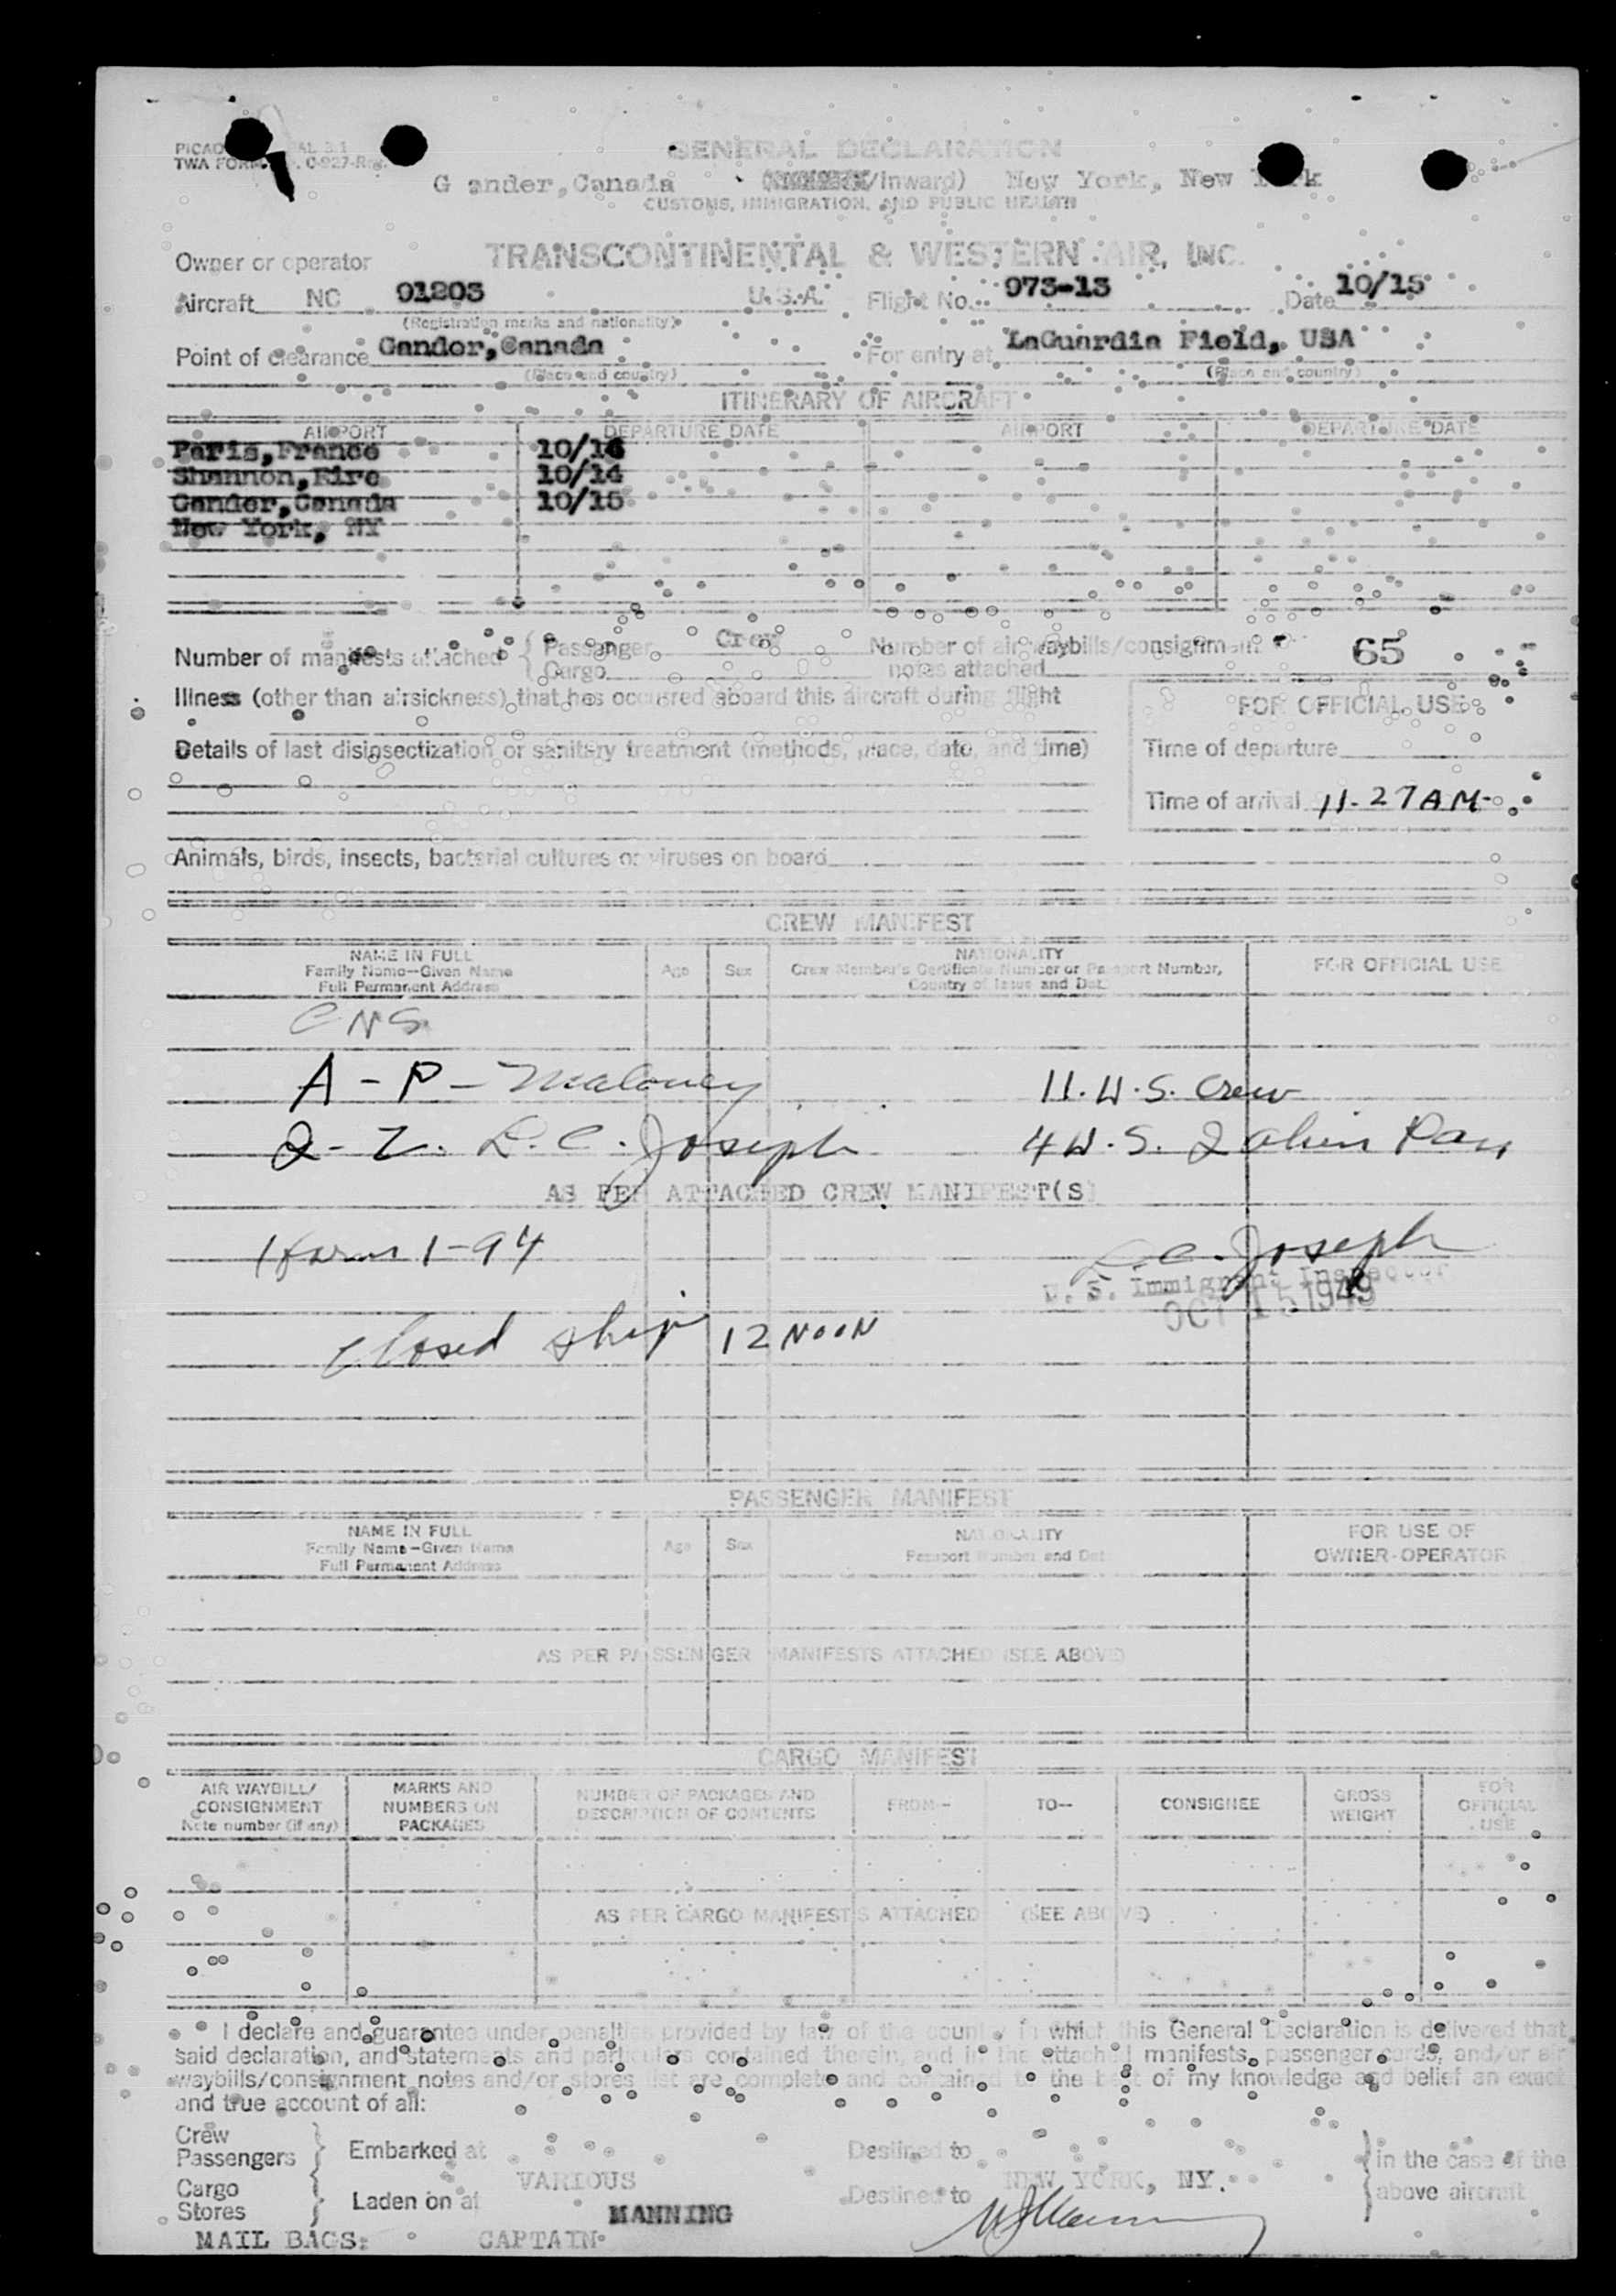 GENERAL DECLARATION
TWA FORM
G ander, Canada /Inward) New York, New
CUSTOMS, IMMIGRATION, AND PUBLIC HEALTH
Owner or operator TRANSCONTINENTAL & WESTERN AIR, INC.
Aircraft NC 91203 U.S.A. Flight No. 973-13 Date 10/15
(Registration marks and nationality)
Point of clearance Gander, Canada For entry at LaGuardia Field, USA
(Place and country) (Place and country)
ITINERARY OF AIRCRAFT
AIRPORT DEPARTURE DATE AIRPORT DEPARTURE DATE
Paris, France 10/14
Shannon, Eire 10/14
Gander, Canada 10/15
New York, NY
Number of manifests attached { Passenger Crew Number of air waybills/consignment 65
Cargo notes attached
Illness (other than airsickness) that has occurred aboard this aircraft during flight
FOR OFFICIAL USE
Details of last disinsectization or sanitary treatment (methods, place, date, and time)
Time of departure
Time of arrival 11-27 AM-
Animals, birds, insects, bacterial cultures or viruses on board
CREW MANIFEST
NAME IN FULL Age Sex NATIONALITY FOR OFFICIAL USE
Family Name—Given Name Crew Member's Certificate Number or Passport Number,
Full Permanent Address Country of Issue and Date
CNS
A - P - Maloney 11. U.S. Crew
L.C. Joseph 4 U.S.
AS PER ATTACHED CREW MANIFEST(S)
1 form I-94 L.C. Joseph
U. S. Immigrant Inspector
OCT 15 1949
closed ship 12 NOON
PASSENGER MANIFEST
NAME IN FULL Age Sex NATIONALITY FOR USE OF
Family Name—Given Name Passport Number and Date OWNER-OPERATOR
Full Permanent Address
AS PER PASSENGER MANIFESTS ATTACHED (SEE ABOVE)
CARGO MANIFEST
AIR WAYBILL/ MARKS AND NUMBER OF PACKAGES AND FROM— TO— CONSIGNEE GROSS FOR
CONSIGNMENT NUMBERS ON DESCRIPTION OF CONTENTS WEIGHT OFFICIAL
Note number (if any) PACKAGES USE
AS PER CARGO MANIFESTS ATTACHED (SEE ABOVE)
I declare and guarantee under penalties provided by law of the country in which this General Declaration is delivered that
said declaration, and statements and particulars contained therein, and in the attached manifests, passenger cards, and/or air
waybills/consignment notes and/or stores list are complete and contained to the best of my knowledge and belief an exact
and true account of all:
Crew
Passengers } Embarked at Destined to } in the case of the
VARIOUS NEW YORK, NY.
Cargo
Stores } Laden on at Destined to above aircraft
MANNING
MAIL BAGS: CAPTAIN